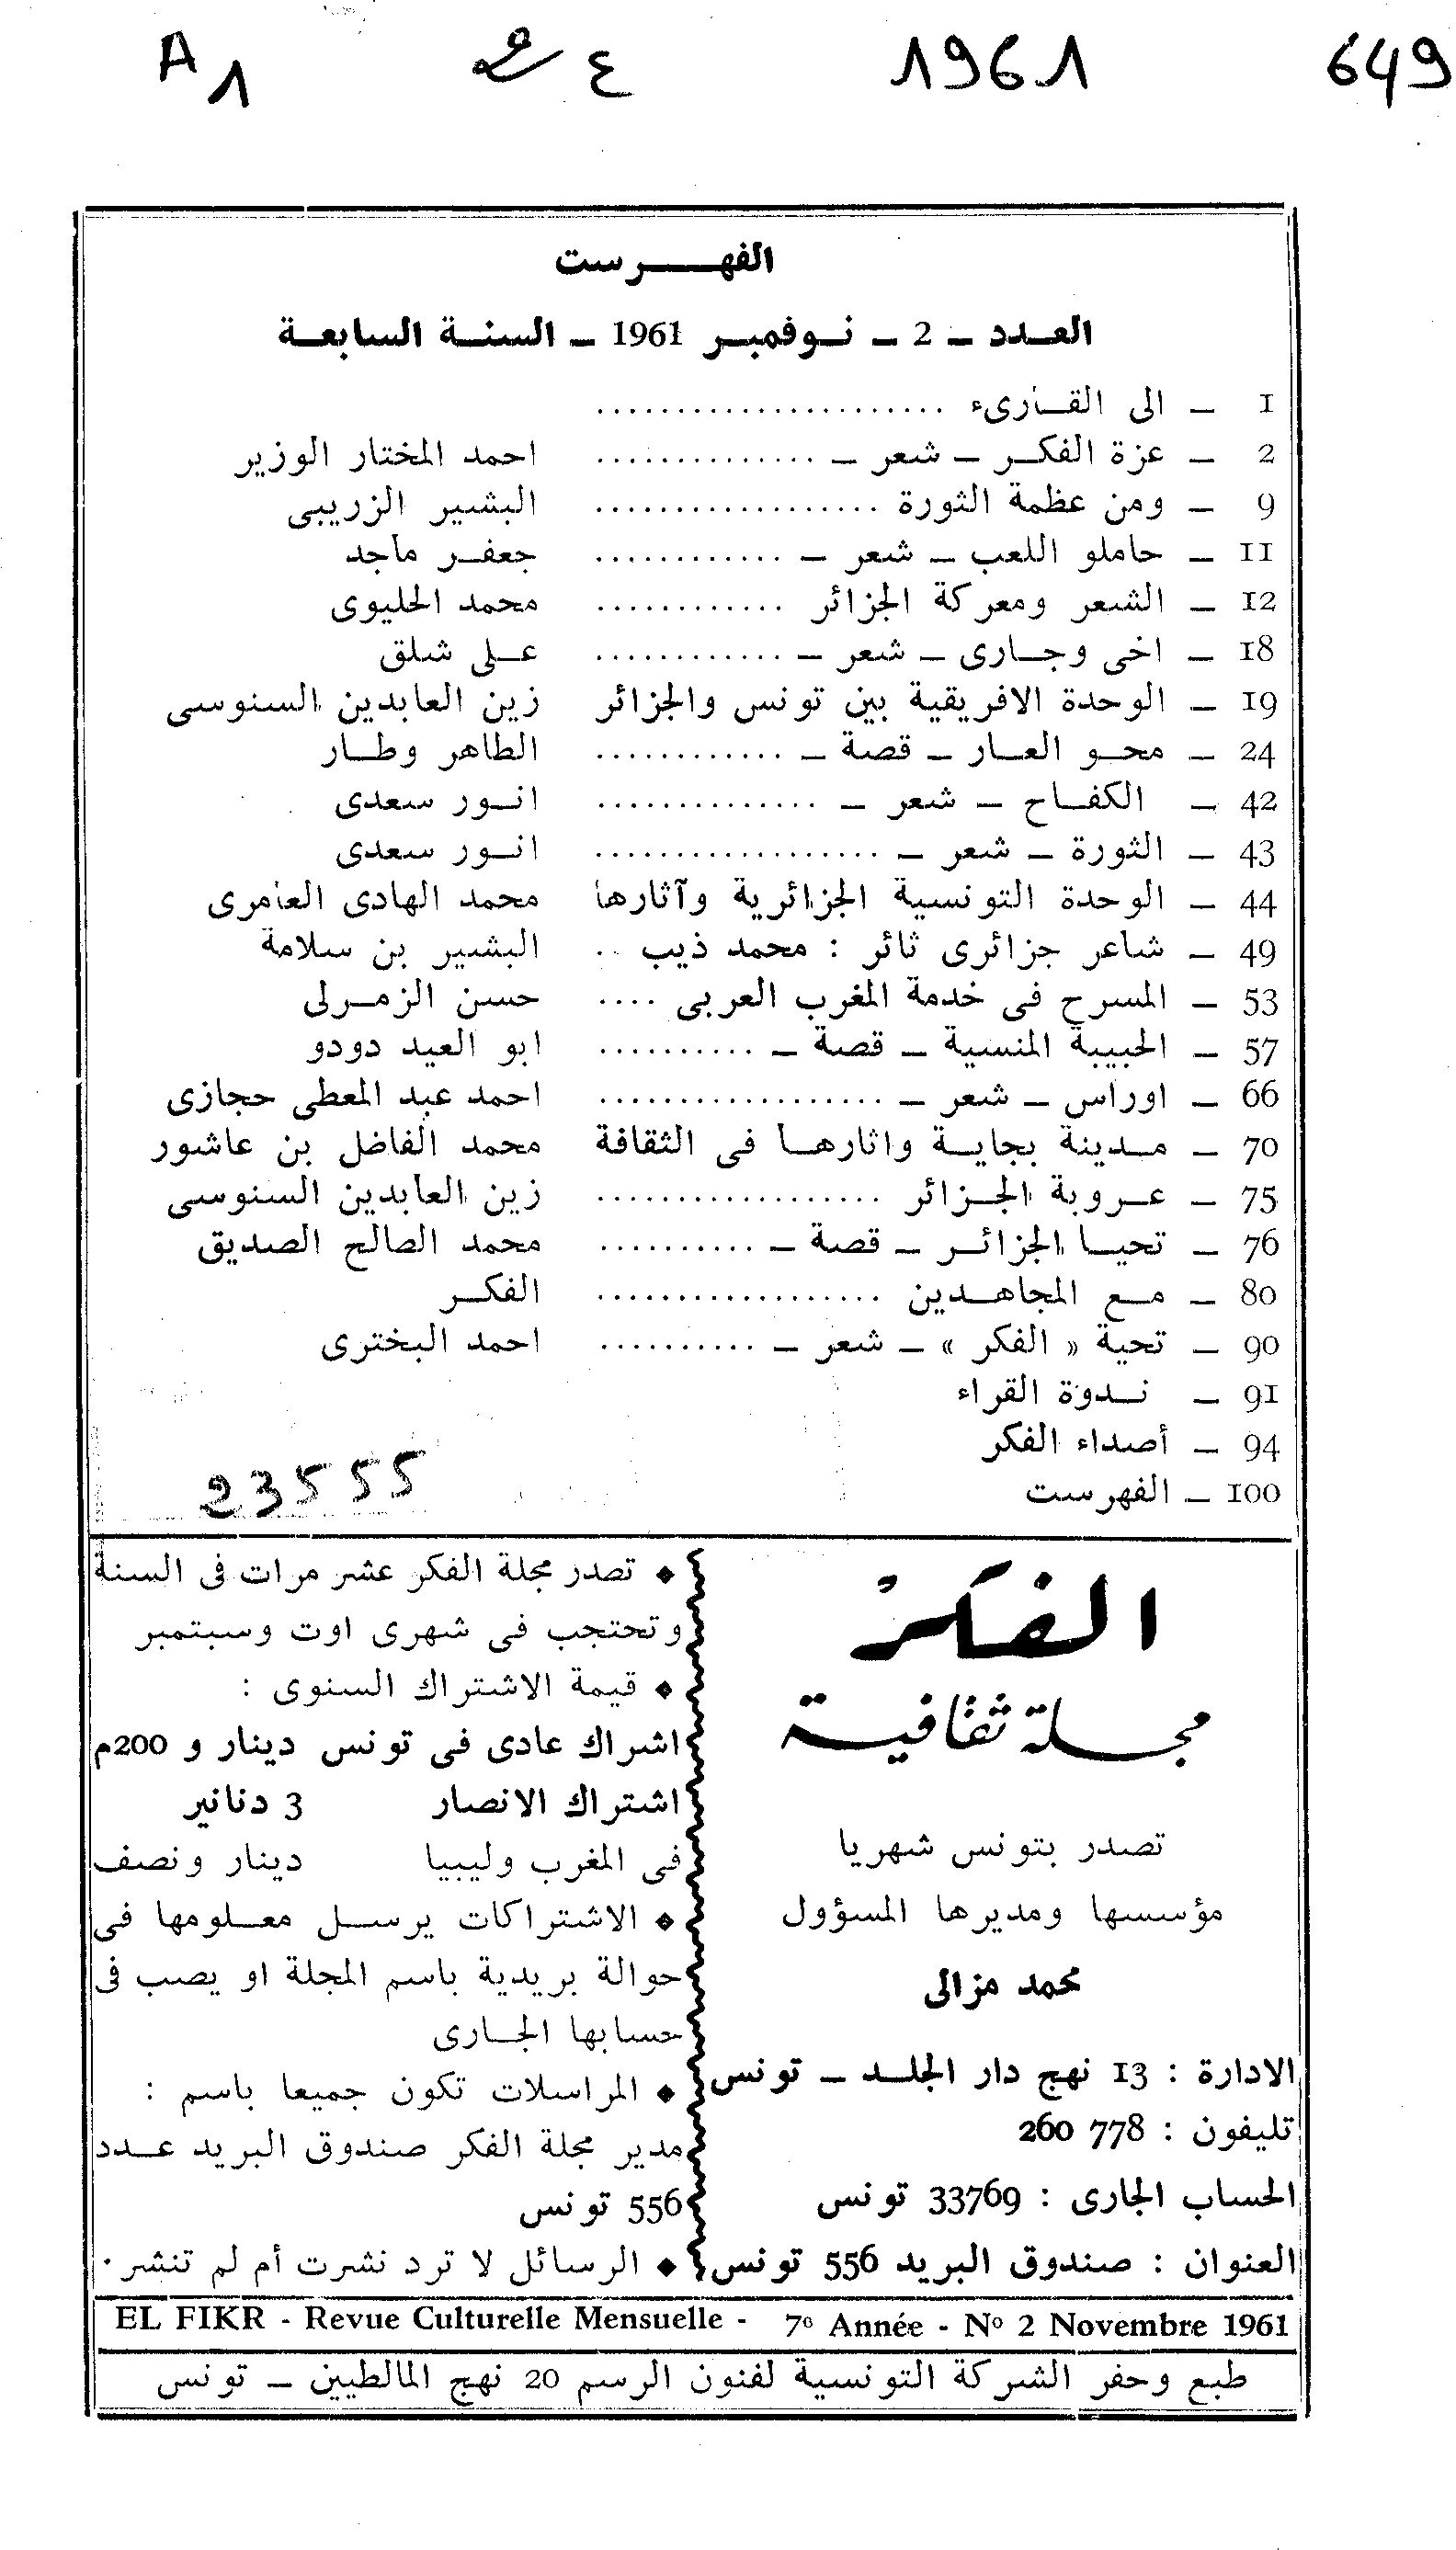 A1 ع 1961 649
الفهـــرست
العدد ــ 2 ــ نوفمبر 1961 ــ السنة السابعة
1 ــ الى القارىء ......................
2 ــ عزة الفكر ــ شعر ــ .............. احمد المختار الوزير
9 ــ ومن عظمة الثورة .................. البشير الزريبى
11 ــ حاملو اللعب ــ شعر ــ ............ جعفر ماجد
12 ــ الشعر ومعركة الجزائر ............ محمد الحليوى
18 ــ اخى وجارى ــ شعر ــ ............ على شلق
19 ــ الوحدة الافريقية بين تونس والجزائر زين العابدين السنوسى
24 ــ محو العار ــ قصة ــ ............ الطاهر وطار
42 ــ الكفاح ــ شعر ــ .............. انور سعدى
43 ــ الثورة ــ شعر ــ .................. انور سعدى
44 ــ الوحدة التونسية الجزائرية وآثارها محمد الهادى العامرى
49 ــ شاعر جزائرى ثائر : محمد ذيب .. البشير بن سلامة
53 ــ المسرح فى خدمة المغرب العربى .... حسن الزمرلى
57 ــ الحبيبة المنسية ــ قصة ــ .......... ابو العيد دودو
66 ــ اوراس ــ شعر ــ .................. احمد عبد المعطى حجازى
70 ــ مدينة بجاية واثارها فى الثقافة محمد الفاضل بن عاشور
75 ــ عروبة الجزائر .................. زين العابدين السنوسى
76 ــ تحيا الجزائر ــ قصة ــ .......... محمد الصالح الصديق
80 ــ مع المجاهدين .................. الفكر
90 ــ تحية « الفكر » ــ شعر ــ .......... احمد البخترى
91 ــ ندوة القراء
94 ــ أصداء الفكر
100 ــ الفهرست
23555
الفكر
مجلة ثقافية
تصدر بتونس شهريا
مؤسسها ومديرها المسؤول
محمد مزالى
الادارة : 13 نهج دار الجلد ــ تونس
تليفون : 778 260
الحساب الجارى : 33769 تونس
العنوان : صندوق البريد 556 تونس
♦ تصدر مجلة الفكر عشر مرات فى السنة
وتحتجب فى شهرى اوت وسبتمبر
♦ قيمة الاشتراك السنوى :
اشراك عادى فى تونس دينار و 200م
اشتراك الانصار 3 دنانير
فى المغرب وليبيا دينار ونصف
♦ الاشتراكات يرسل معلومها فى
حوالة بريدية باسم المجلة او يصب فى
حسابها الجارى
♦ المراسلات تكون جميعا باسم :
مدير مجلة الفكر صندوق البريد عدد
556 تونس
♦ الرسائل لا ترد نشرت أم لم تنشر .
EL FIKR - Revue Culturelle Mensuelle - 7e Année - No 2 Novembre 1961
طبع وحفر الشركة التونسية لفنون الرسم 20 نهج المالطيين ــ تونس